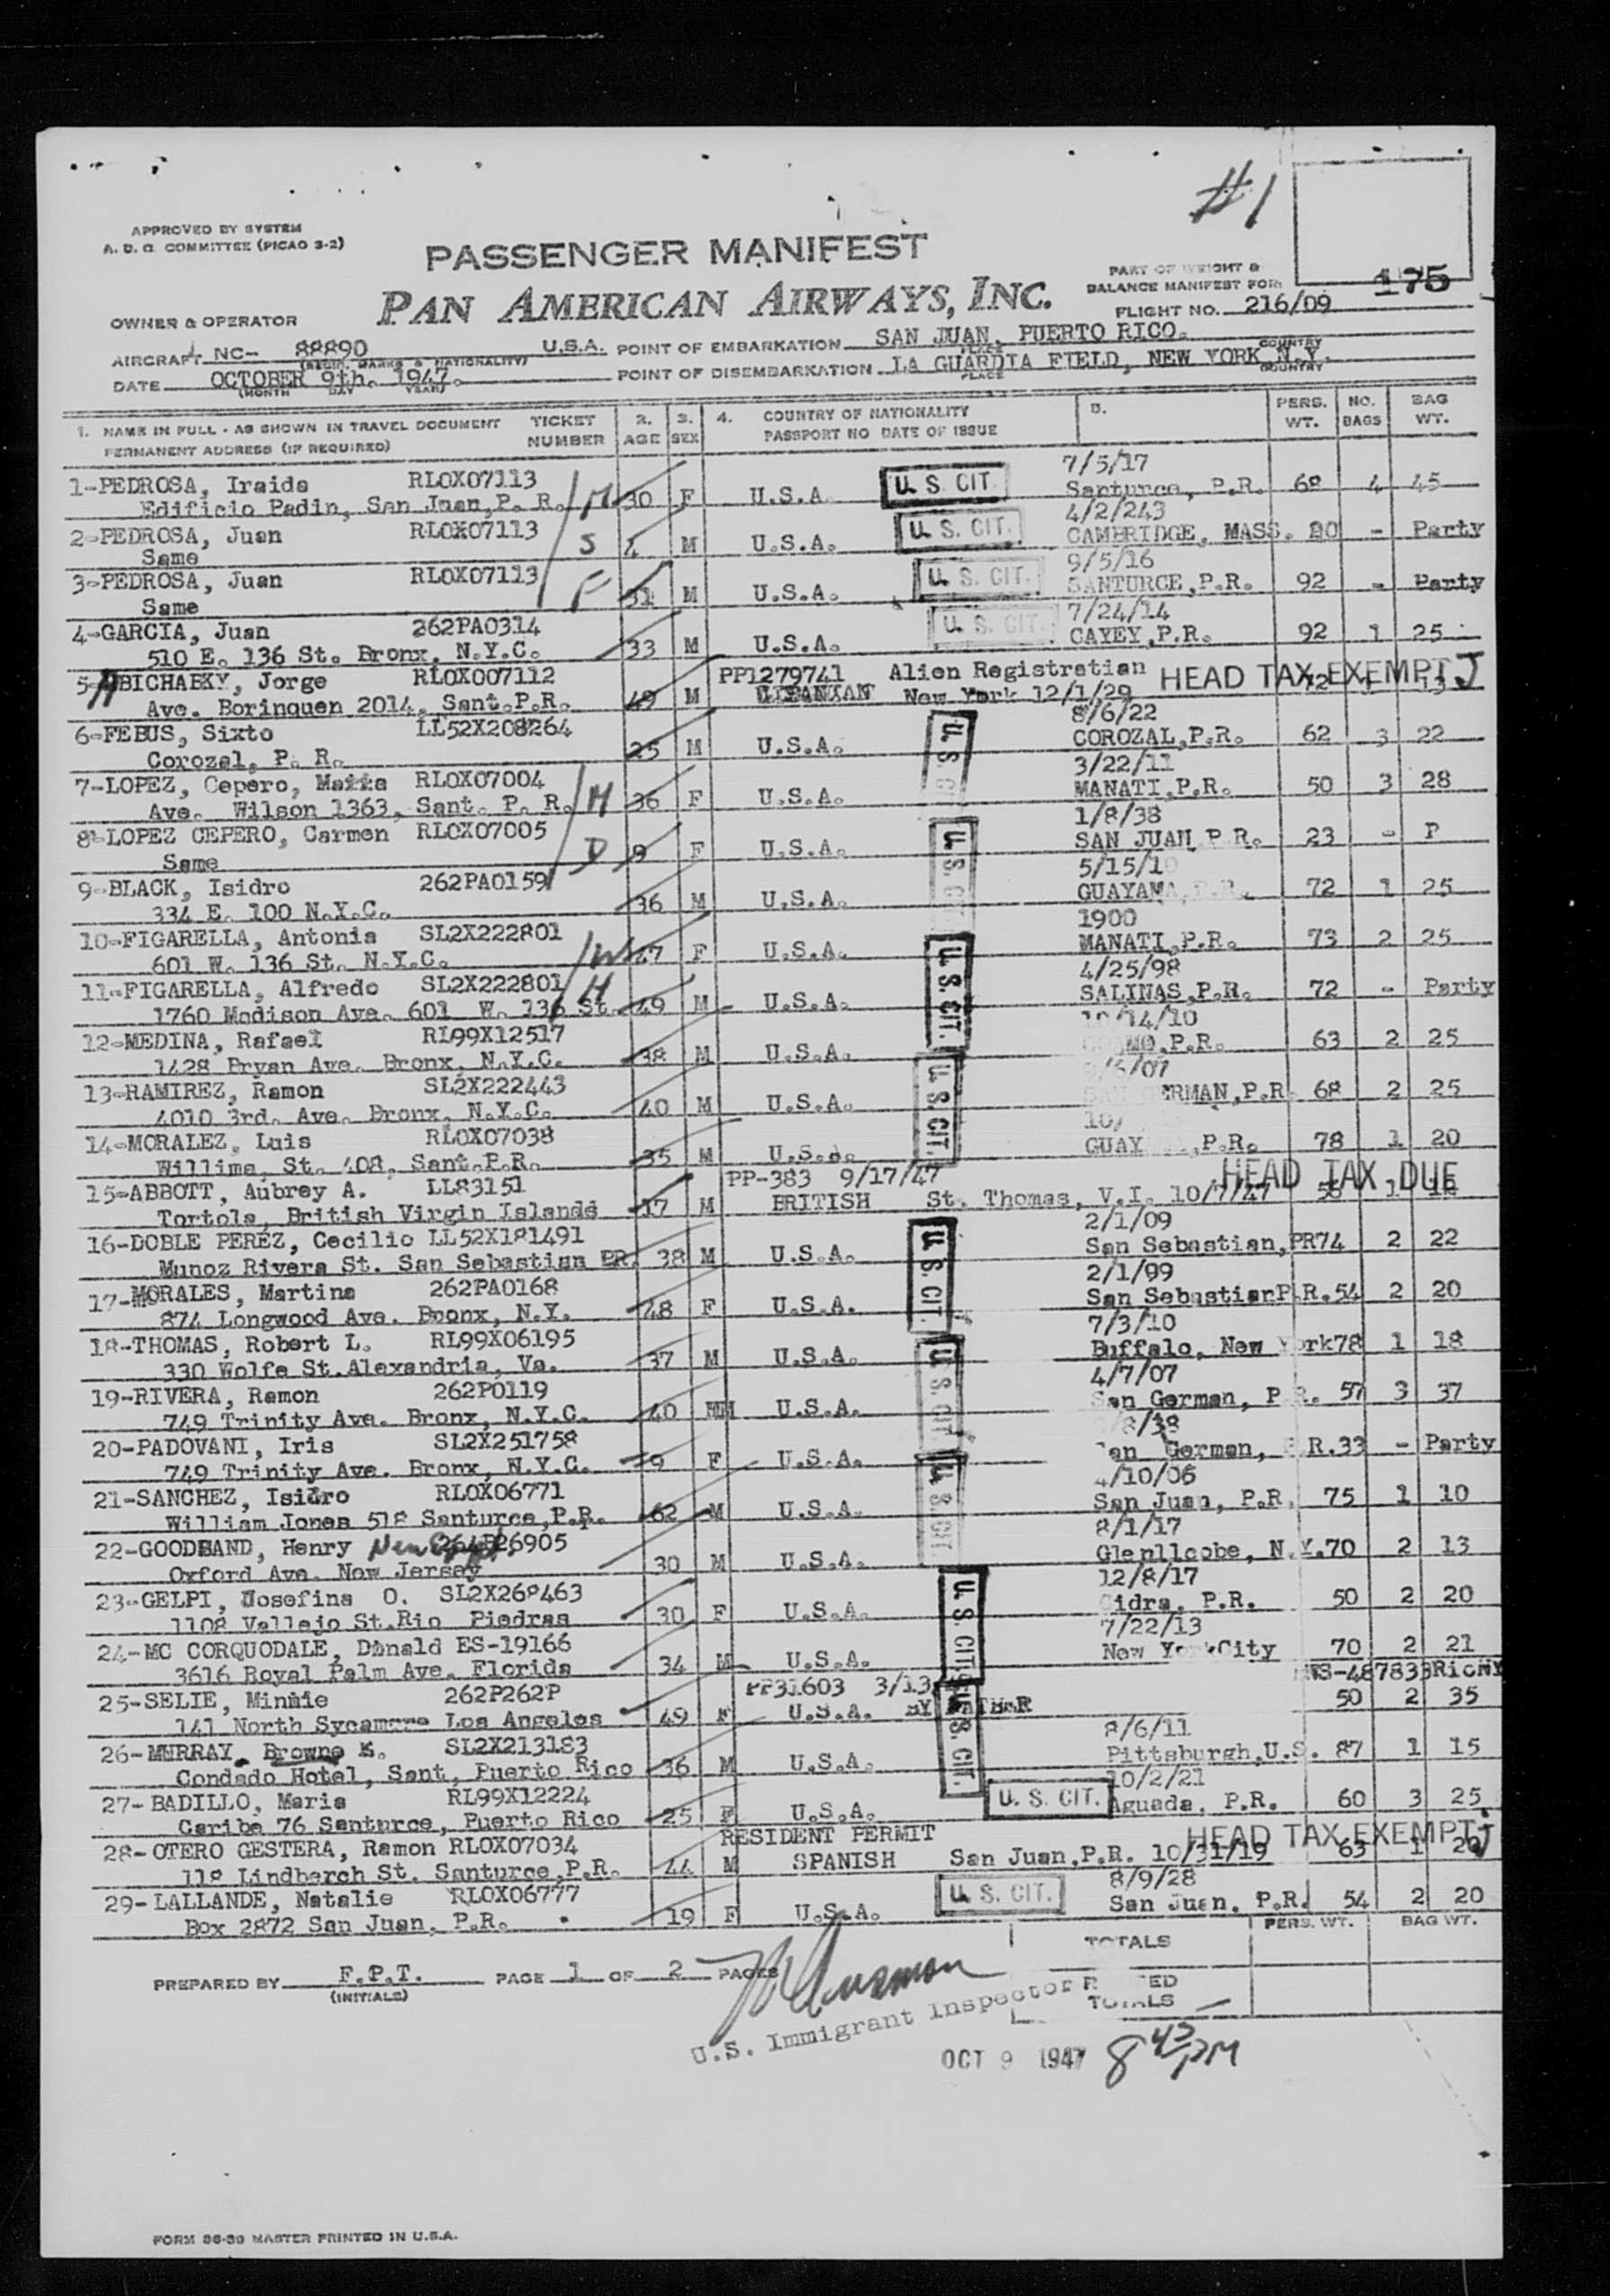 #1
APPROVED BY SYSTEM
A. D. G. COMMITTEE (PICAO 3-2)
PASSENGER MANIFEST
PART OF WEIGHT &
BALANCE MANIFEST FOR:
175
PAN AMERICAN AIRWAYS, INC.
FLIGHT NO. 216/09
OWNER & OPERATOR
AIRCRAFT NC- 88890 U.S.A. POINT OF EMBARKATION SAN JUAN, PUERTO RICO.
(REGIS. MARKS & NATIONALITY) PLACE COUNTRY
DATE OCTOBER 9th. 1947. POINT OF DISEMBARKATION LA GUARDIA FIELD, NEW YORK N.Y.
(MONTH DAY YEAR) PLACE COUNTRY
1. NAME IN FULL - AS SHOWN IN TRAVEL DOCUMENT TICKET NUMBER 2. AGE 3. SEX 4. COUNTRY OF NATIONALITY 5. PERS. WT. NO. BAGS BAG WT.
PERMANENT ADDRESS (IF REQUIRED) PASSPORT NO DATE OF ISSUE
7/5/17
1-PEDROSA, Iraida RLOX07113 M 30 F U.S.A. U.S. CIT. Santurce, P.R. 68 4 45
Edificio Padin, San Juan, P. R.
4/2/243
2-PEDROSA, Juan RLOX07113 S 4 M U.S.A. U.S. CIT. CAMBRIDGE, MASS. 20 - Party
Same
9/5/16
3-PEDROSA, Juan RLOX07113 F 31 M U.S.A. U.S. CIT. SANTURCE, P.R. 92 - Party
Same
7/24/14
4-GARCIA, Juan 262PA0314 33 M U.S.A. U.S. CIT. CAYEY, P.R. 92 1 25
510 E. 136 St. Bronx, N.Y.C.
5- BICHABKY, Jorge RLOX007112 49 M PP1279741 Alien Registration HEAD TAX EXEMPT J
Ave. Borinquen 2014, Sant. P.R. New York 12/1/29
8/6/22
6-FEBUS, Sixto LL52X208264 25 M U.S.A. COROZAL, P.R. 62 3 22
Corozal, P. R.
3/22/11
7-LOPEZ, Cepero, Maria RLOX07004 M 36 F U.S.A. MANATI, P.R. 50 3 28
Ave. Wilson 1363, Sant. P. R.
1/8/38
8-LOPEZ CEPERO, Carmen RLOX07005 D 9 F U.S.A. SAN JUAN P.R. 23 - P
Same
5/15/10
9-BLACK, Isidro 262PA0159 36 M U.S.A. GUAYAMA, P.R. 72 1 25
334 E. 100 N.Y.C.
1900
10-FIGARELLA, Antonia SL2X222801 W 47 F U.S.A. MANATI, P.R. 73 2 25
601 W. 136 St. N.Y.C.
4/25/98
11-FIGARELLA, Alfredo SL2X222801 H 49 M U.S.A. U.S. CIT. SALINAS, P.R. 72 - Party
1760 Madison Ave. 601 W. 136 St.
10/14/10
12-MEDINA, Rafael RL99X12517 38 M U.S.A. P.R. 63 2 25
1428 Bryan Ave. Bronx, N.Y.C.
13-RAMIREZ, Ramon SL2X222443 40 M U.S.A. U.S. CIT. SAN GERMAN, P.R. 68 2 25
4010 3rd. Ave. Bronx, N.Y.C.
10/
14-MORALEZ, Luis RLOX07038 35 M U.S.A. GUAY , P.R. 78 1 20
Willims, St. 408, Sant. P.R.
15-ABBOTT, Aubrey A. LL83151 17 M PP-383 9/17/47 HEAD TAX DUE
Tortola, British Virgin Islands BRITISH St. Thomas, V.I. 10/7/47
2/1/09
16-DOBLE PEREZ, Cecilio LL52X181491 38 M U.S.A. U.S. CIT. San Sebastian, PR 74 2 22
Munoz Rivera St. San Sebastian PR
2/1/99
17-MORALES, Martina 262PA0168 48 F U.S.A. San Sebastian P.R. 54 2 20
874 Longwood Ave. Bronx, N.Y.
7/3/10
18-THOMAS, Robert L. RL99X06195 37 M U.S.A. Buffalo, New York 78 1 18
330 Wolfe St. Alexandria, Va.
4/7/07
19-RIVERA, Ramon 262P0119 40 M U.S.A. U.S. CIT. San German, P.R. 57 3 37
749 Trinity Ave. Bronx, N.Y.C.
/8/38
20-PADOVANI, Iris SL2X251758 9 F U.S.A. San German, P.R. 33 - Party
749 Trinity Ave. Bronx, N.Y.C.
4/10/06
21-SANCHEZ, Isidro RLOX06771 62 M U.S.A. U.S. CIT. San Juan, P.R. 75 1 10
William Jones 518 Santurce, P.R.
8/1/17
22-GOODBAND, Henry 264P26905 30 M U.S.A. Glenllcobe, N.Y. 70 2 13
Oxford Ave. New Jersey
12/8/17
23-GELPI, Josefina O. SL2X268463 30 F U.S.A. U.S. CIT. Cidra, P.R. 50 2 20
1108 Vallejo St. Rio Piedras
7/22/13
24-MC CORQUODALE, Donald ES-19166 34 M U.S.A. New York City 70 2 21
3616 Royal Palm Ave. Florida
25-SELIE, Minnie 262P262P 49 F PP31603 3/13 50 2 35
141 North Sycamore Los Angeles U.S.A. BY
8/6/11
26-MURRAY, Browne K. SL2X213183 36 M U.S.A. U.S. CIT. Pittsburgh, U.S. 87 1 15
Condado Hotel, Sant, Puerto Rico
10/2/21
27-BADILLO, Maria RL99X12224 25 F U.S.A. U.S. CIT. Aguada, P.R. 60 3 25
Caribe 76 Santurce, Puerto Rico
28-OTERO GESTERA, Ramon RLOX07034 44 M RESIDENT PERMIT HEAD TAX EXEMPT J
118 Lindberch St. Santurce, P.R. SPANISH San Juan, P.R. 10/31/19 63 1 20
8/9/28
29-LALLANDE, Natalie RLOX06777 19 F U.S.A. U.S. CIT. San Juan, P.R. 54 2 20
Box 2872 San Juan, P.R.
PERS. WT. BAG WT.
TOTALS
PREPARED BY F.P.T. PAGE 1 OF 2 PAGES
(INITIALS)
TOTALS
U.S. Immigrant Inspector
OCT 9 1947 8 42 PM
FORM 36-39 MASTER PRINTED IN U.S.A.